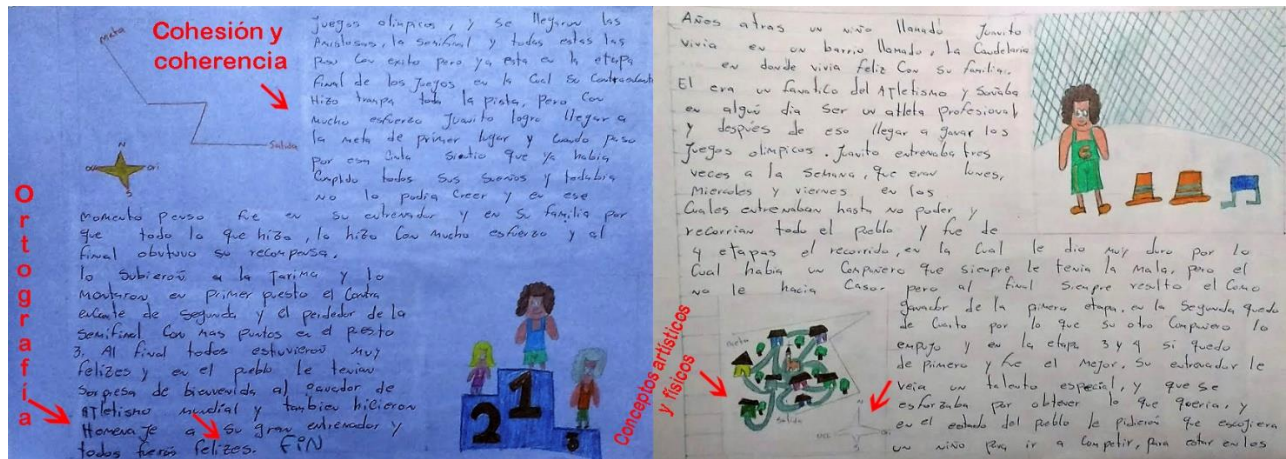 Cohesión y
coherencia
Ortografía
Conceptos artísticos
y físicos
Meta
Salida
N
S
juegos olimpicos, y se llegaron las
Amistosas, la semifinal y todas estas las
paso con exito pero ya esta en la etapa
final de los juegos en la cual su contrincante
Hizo trampa toda la pista, pero con
mucho esfuerzo Juanito logro llegar a
la meta de primer lugar y cuando paso
por esa cinta sintio que ya habia
cumplido todos sus sueños y todabia
no lo podia creer y en ese
momento penso fue en su entrenador y en su familia por
que todo lo que hizo, lo hizo con mucho esfuerzo y al
final obtuvo su recompensa.
lo subieron a la tarima y lo
montaron en primer puesto el contra
de segundo y el perdedor de la
semifinal con mas puntos en el puesto
3. Al final todos estuvieron muy
felizes y en el pueblo le tenian
sorpresa de bienvenida al ganador de
Atletismo mundial y tambien hicieron
Homenaje a su gran entrenador y
todos fueron felizes. FIN
2
1
3
Años atras un niño llamado Juanito
vivia en un barrio llamado, la Candelaria
en donde vivia feliz con su familia.
El era un fanatico del Atletismo y soñaba
en algun dia ser un atleta profesional
y después de eso llegar a ganar los
juegos olimpicos. Juanito entrenaba tres
veces a la semana, que eran lunes,
miercoles y viernes en los
cuales entrenaban hasta no poder y
recorrian todo el pueblo y fue de
4 etapas el recorrido, en la cual le dio muy duro por lo
cual habia un compañero que siempre le tenia la mala, pero el
no le hacia caso, pero al final siempre resulto el como
ganador de la primera etapa, en la segunda quedo
de cuarto por lo que su otro compañero lo
empujo y en la etapa 3 y 4 si quedo
de primero y fue el mejor. Su entrenador le
veia un talento especial, y que se
esforzaba por obtener lo que queria, y
en el estado del pueblo le pidieron que escojiera
un niño para ir a competir, para estar en los
meta
salida
N
S